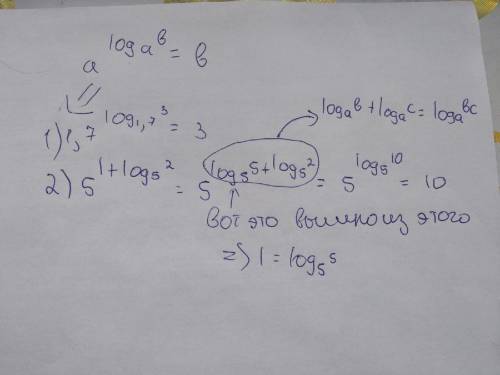 a^log_a b = b
1) 1,7^log_1,7 3 = 3
log_a b + log_a c = log_a bc
2) 5^1+log_5 2 = 5^log_5 5+log_5 2 = 5^log_5 10 = 10
вот это вышло из этого
=> 1 = log_5 5